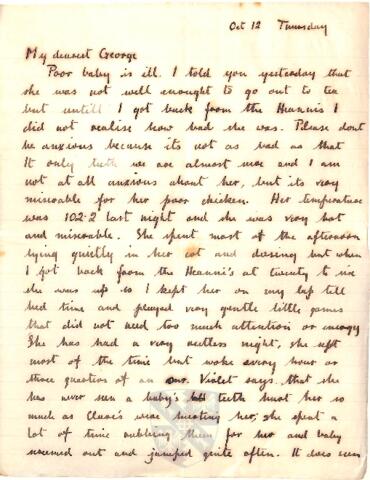 Oct 12 Thursday
My dearest George
Poor baby is ill. I told you yesterday that
she was not well enought to go out to tea
but untill I got back from the Heannis I
did not realise how bad she was. Please dont
be anxious because its not as bad as that
It only teeth we are almost sure and I am
not at all anxious about her, but its very
miserable for her poor chicken. Her temperature
was 102.2 last night and she was very hot
and miserable. She spent most of the afternoon
lying quietly in her cot and dozing but when
I got back from the Heanni's at twenty to six
she was up so I kept her on my lap till
bed time and played very gentle little games
that did not need too much attention or energy
She has had a very restless night, she slept
most of the time but woke every hour or
three quarters of an our. Violet says that she
has never seen a baby's teeth hurt her so
much as were hurting her, she spent a
lot of time rubbing them for her and baby
screamed out and jumped quite often. It does seem